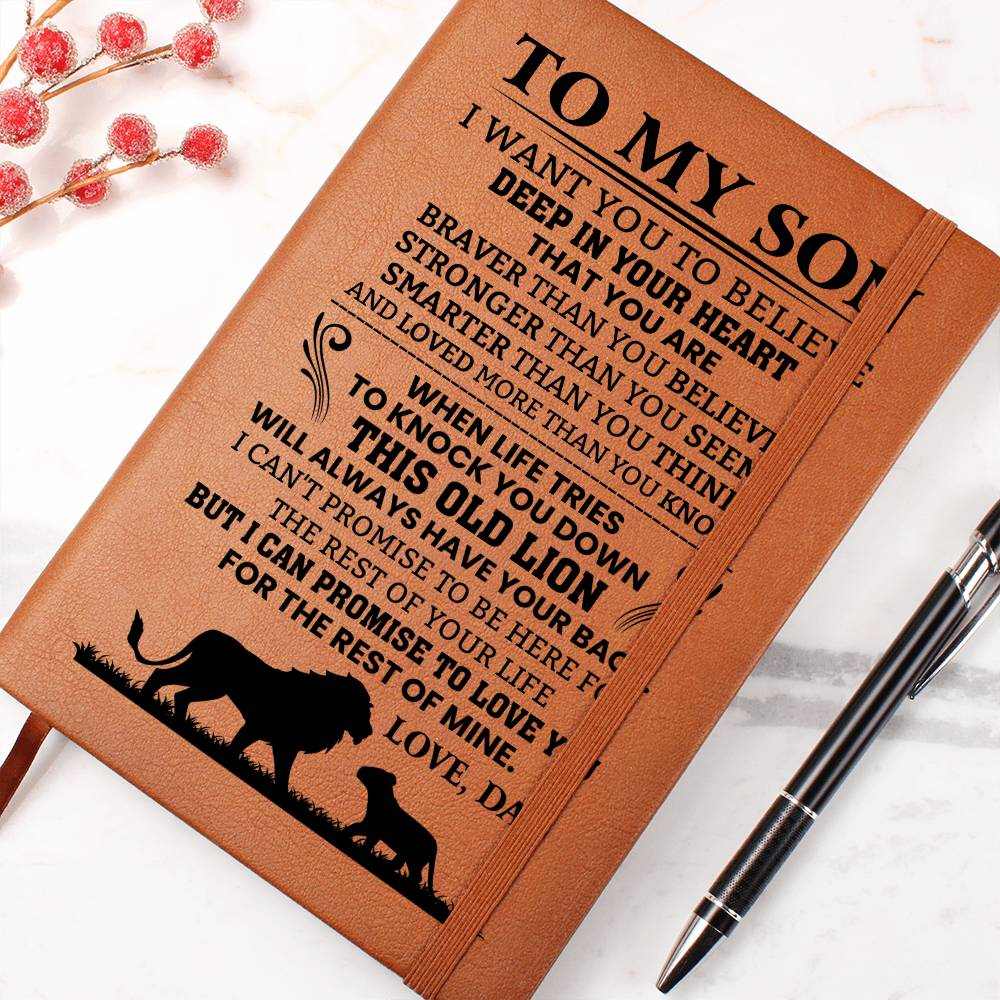 TO MY SON
I WANT YOU TO BELIEVE
DEEP IN YOUR HEART
THAT YOU ARE
BRAVER THAN YOU BELIEV
STRONGER THAN YOU SEEM
SMARTER THAN YOU THIN
AND LOVED MORE THAN YOU KNO
WHEN LIFE TRIES
TO KNOCK YOU DOWN
THIS OLD LION
WILL ALWAYS HAVE YOUR BAC
I CAN'T PROMISE TO BE HERE FO
THE REST OF YOUR LIFE
BUT I CAN PROMISE TO LOVE Y
FOR THE REST OF MINE.
LOVE, DA